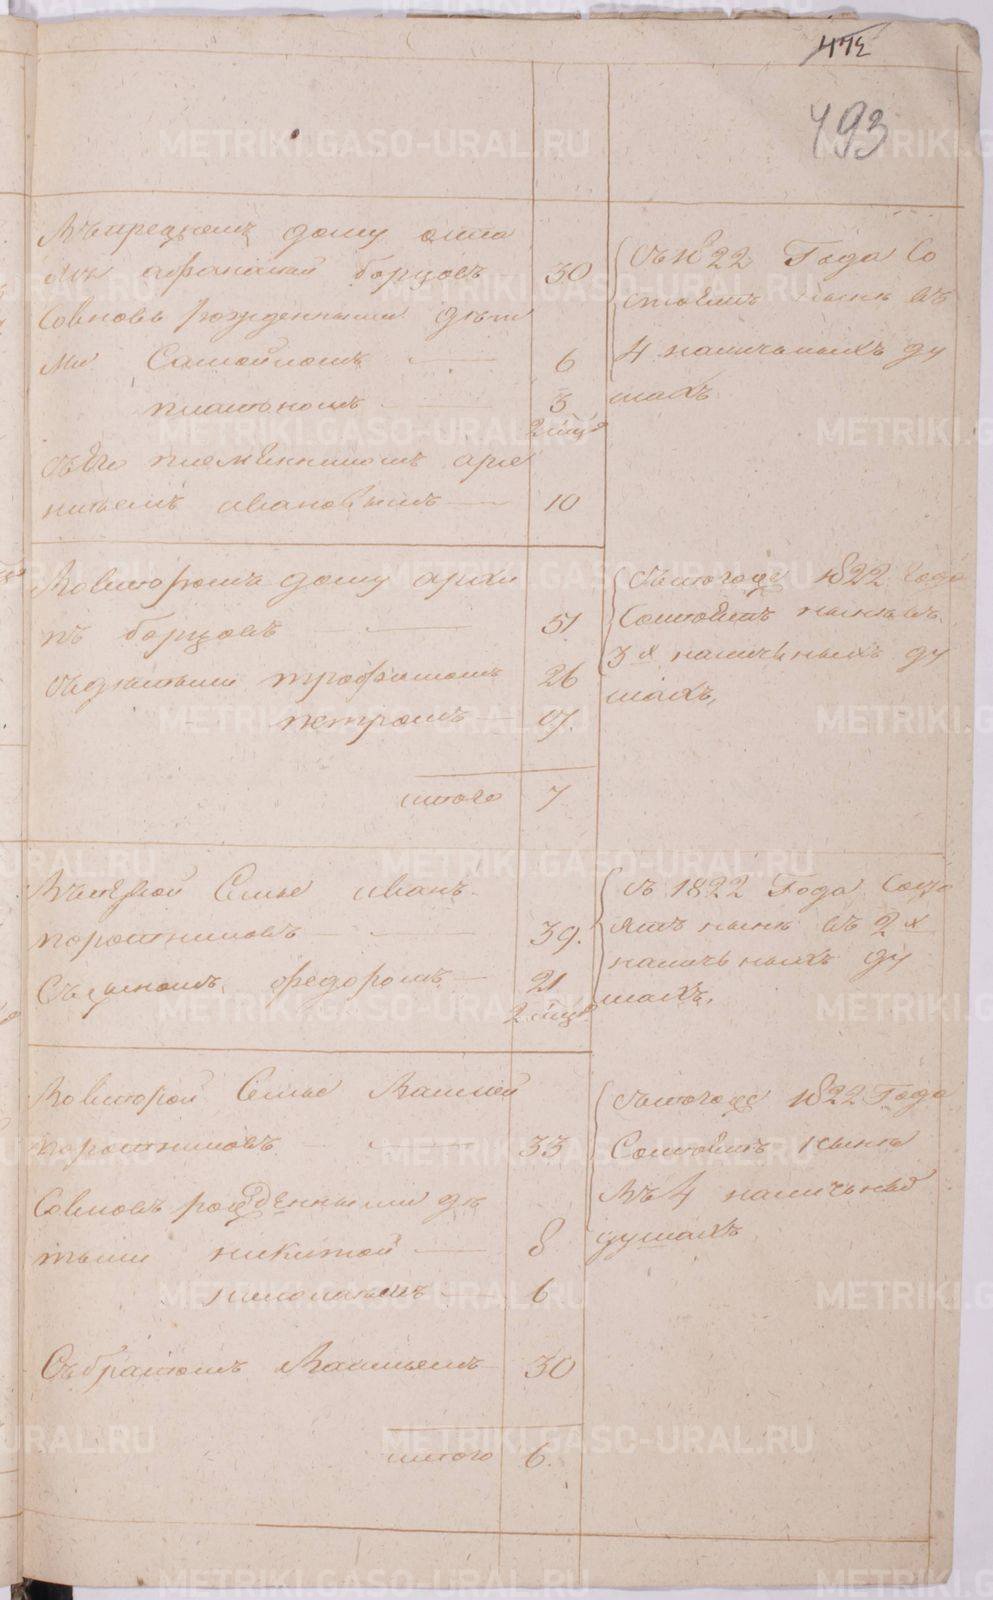 472
493
Въпрежнемъ дому оста
лся афанасей борцовъ 30
Совновь рожденными дѣт
ми Самойломъ 6
платономъ 3
2 мцѣ
съего племянникомъ арсе
нтьемъ ивановымъ 10
съ 1822 Года Со
стоитъ нынѣ въ
4 наличныхъ ду
шахъ
Вовторомъ дому архи
пъ борцовъ 51
съдѣтьми трофимомъ 26
петромъ 17.
итого 7
съ тогоже 1822 Года
Состоитъ нынѣ въ
3 х наличныхъ ду
шахъ,
Въпервой Семье иванъ
поротниковъ 39.
Съ сыномъ федоромъ 21
2 мцѣ.
съ 1822 Года Состо
ятъ нынѣ въ 2 х
наличныхъ ду
шахъ.
Вовторой Семье Василей
поротниковъ 33
Совновь рожденными дѣ
тьми никитой 8
николаемъ 6
Събратомъ Васильемъ 30
итого 6.
съ тогоже 1822 Года
Состоитъ нынѣ
Въ 4 наличныхъ
душахъ
METRIKI.GASO-URAL.RU